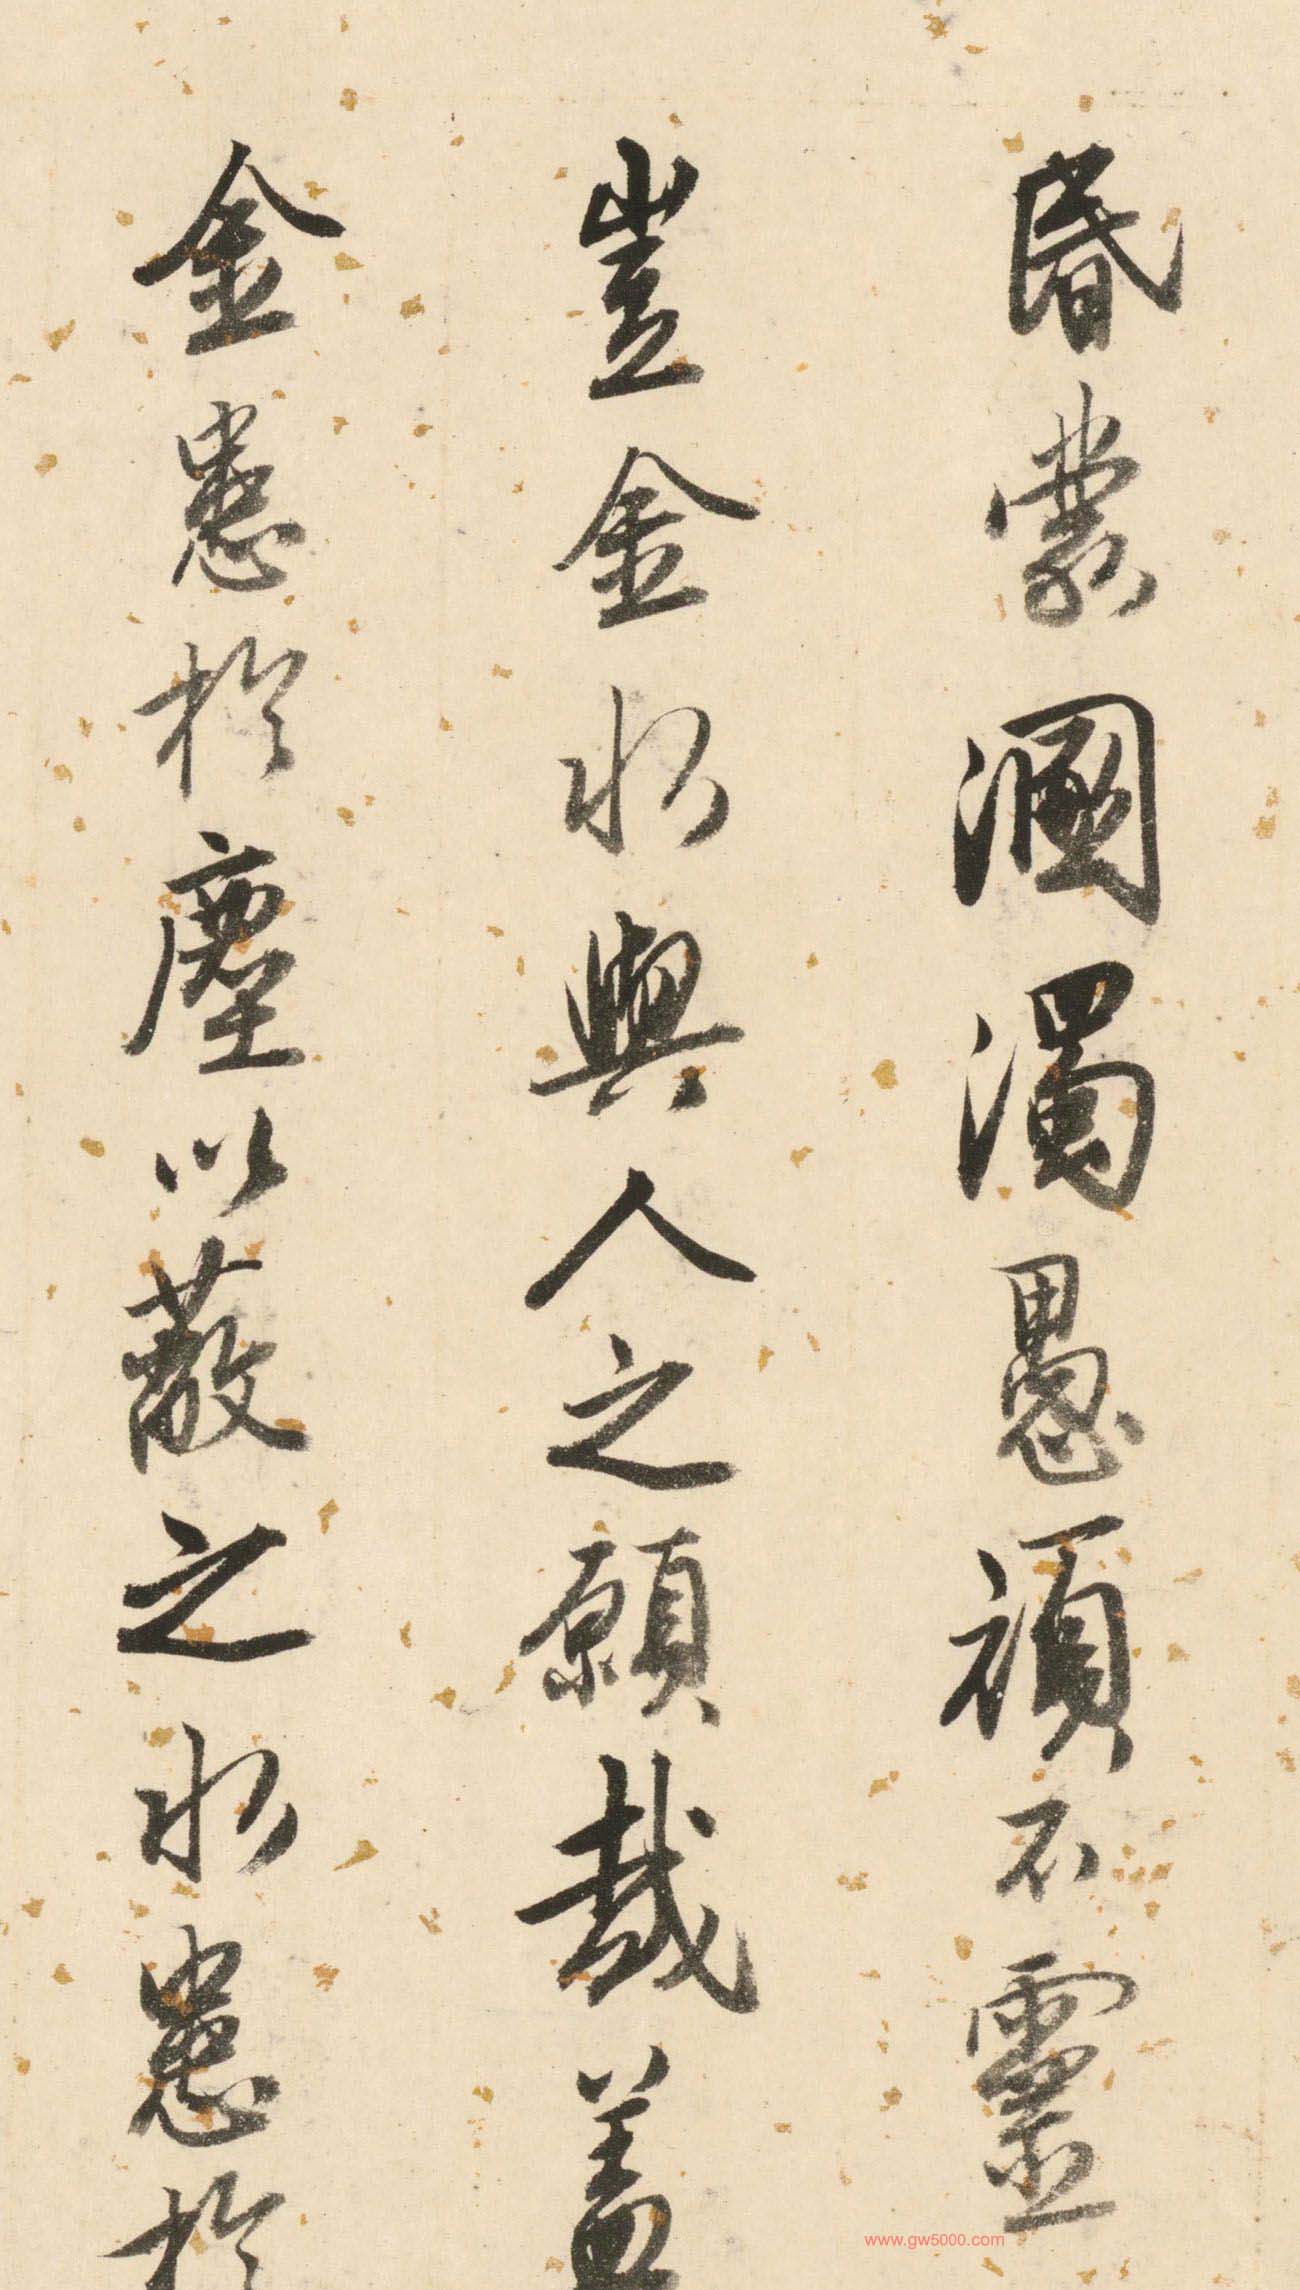 昏蒙溷濁愚頑不靈
豈金水與人之願哉蓋
金患於塵以蔽之水患於
www.gw5000.com